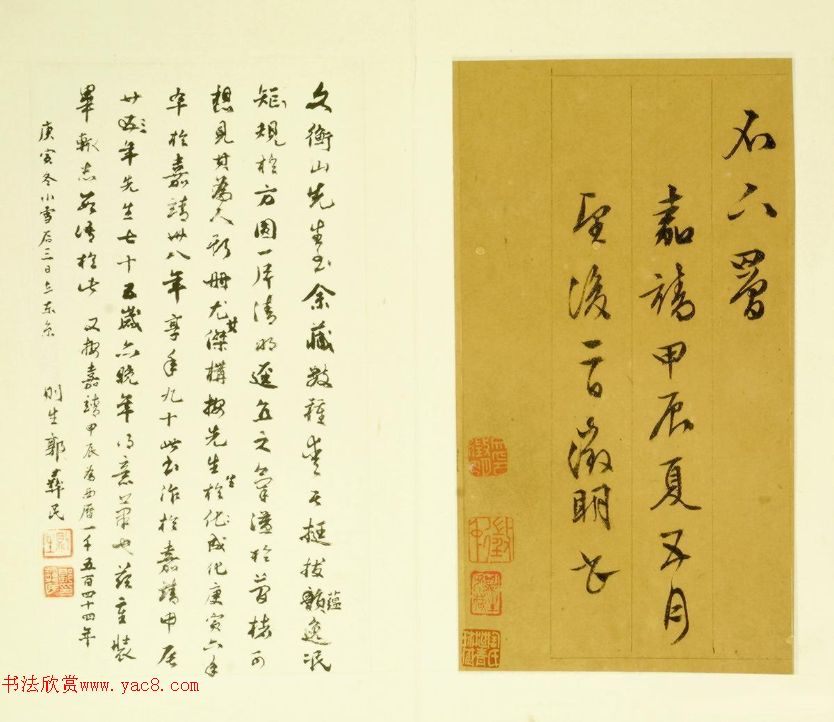 石八四曾
嘉靖甲辰夏五月
望後一日徵明書
文衡山先生書余藏數種皆其挺拔蘊逸泯
矩規於方圓一片清明逕直之氣溢於豪楮可
想見其為人斯冊尤其傑構按先生生於成化庚寅六年
卒於嘉靖卅八年享年九十此書作於嘉靖甲辰
廿三年先生七十五歲亦晚年得意筆也茲重裝
畢輒志數語於此 又按嘉靖甲辰為西曆一千五百四十四年
庚寅冬小雪后三日在東京
則生郭彝民
书法欣赏www.yac8.com